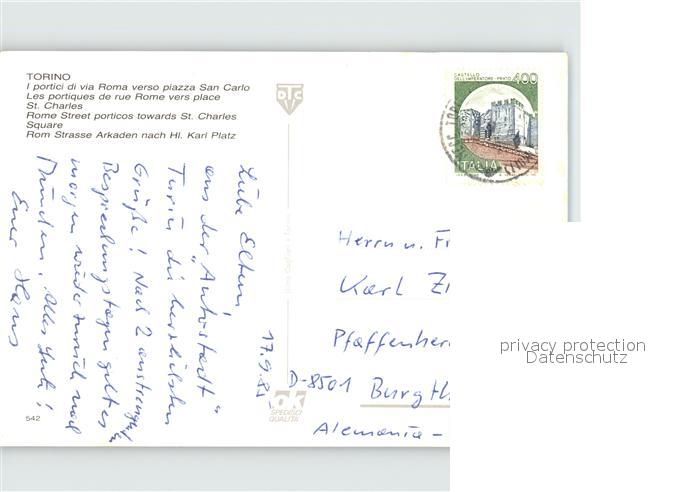 TORINO
I portici di via Roma verso piazza San Carlo
Les portiques de rue Rome vers place
St. Charles
Rome Street porticos towards St. Charles
Square
Rom Strasse Arkaden nach Hl. Karl Platz
DTC
CASTELLO
DELL'IMPERATORE - PRATO
400
ITALIA
17.9.85
Liebe Eltern!
aus der "Autostadt"
Turin die herzlichsten
Grüße! Nach 2 anstrengenden
Besprechungstagen geht es
morgen wieder zurück nach
München. Alles Gute!
Euer Hans
Herrn u. Fr
Karl Zi
Pfaffenher
D-8501 Burgth
Alemania -
SPEDISCI
QUALITÀ
542
privacy protection
Datenschutz